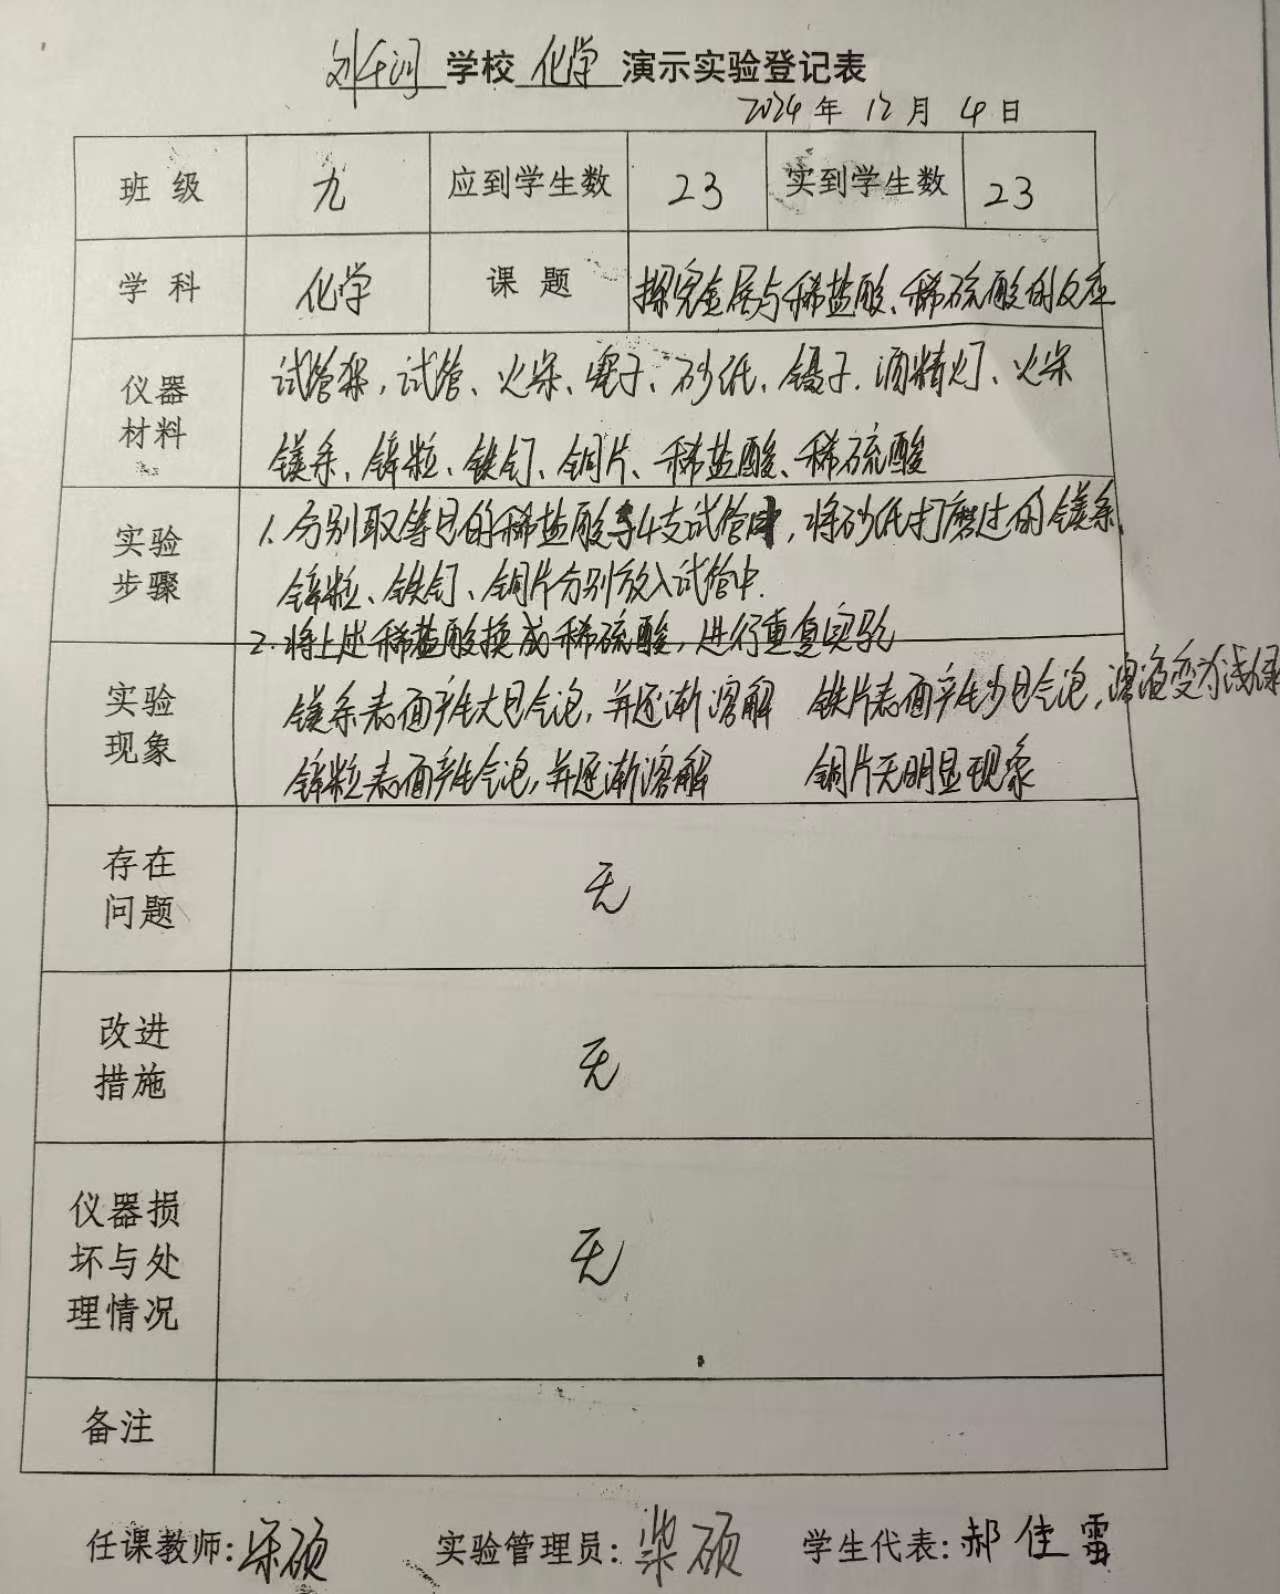 刘千河学校 化学 演示实验登记表
2024年 12月 4日
班级 九 应到学生数 23 实到学生数 23
学科 化学 课题 探究金属与稀盐酸、稀硫酸的反应
仪器材料 试管架,试管、火柴、塞子、砂纸、镊子.酒精灯、火柴
镁条、锌粒、铁钉、铜片、稀盐酸、稀硫酸
实验步骤 1.分别取等量的稀盐酸于4支试管中,将砂纸打磨过的镁条、
锌粒、铁钉、铜片分别放入试管中.
2.将上述稀盐酸换成稀硫酸,进行重复实验
实验现象 镁条表面产生大量气泡,并逐渐溶解 铁片表面产生少量气泡,溶液变为浅绿
锌粒表面产生气泡,并逐渐溶解 铜片无明显现象
存在问题 无
改进措施 无
仪器损坏与处理情况 无
备注
任课教师:柴硕 实验管理员:柴硕 学生代表:郝佳雷